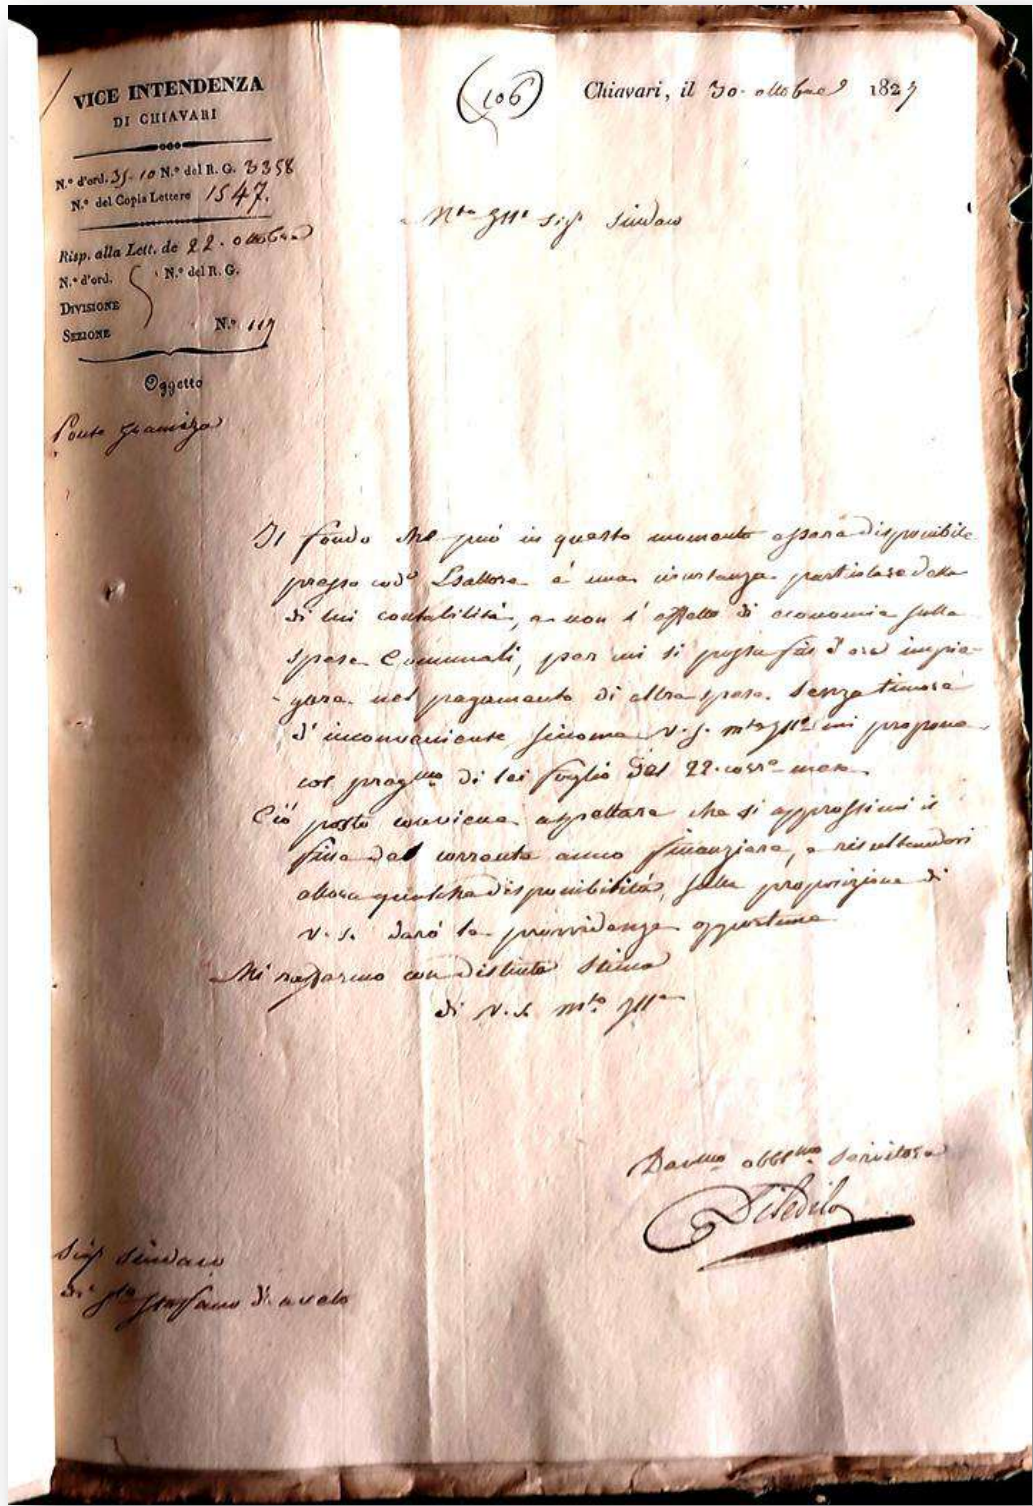 VICE INTENDENZA
DI CHIAVARI
(106)
Chiavari, il 30. ottobre 1827
N.º d'ord. 35-10 N.º del R. G. 3358
N.º del Copia Lettere 1547.
Risp. alla Lett. de 22. ottobre
N.º d'ord. N.º del R. G.
DIVISIONE
SEZIONE N.º 117
Oggetto
Ponte Gramizza
Mto Ille Sigr Sindaco
Il fondo che può in questo momento essere disponibile
presso cod.º Esattore è una circostanza particolare della
di lui contabilità, e non l'effetto di economia sulle
spese Comunali, per cui si possa fin d'ora impie-
gare nel pagamento di altre spese senza timore
d'inconveniente siccome V. S. Mto Ille mi propone
col preg.mo di lei foglio del 22. corr.e mese.
Ciò posto conviene aspettare che si approssimi il
fine del corrente anno finanziere, e risultandovi
allora qualche disponibilità, sulla proposizione di
V. S. darò le provvidenze opportune
Mi raffermo con distinta stima
di V. S. Mto Ille
Dev.mo obbl.mo servitore
Sigr Sindaco
di Sto Steffano d'aveto